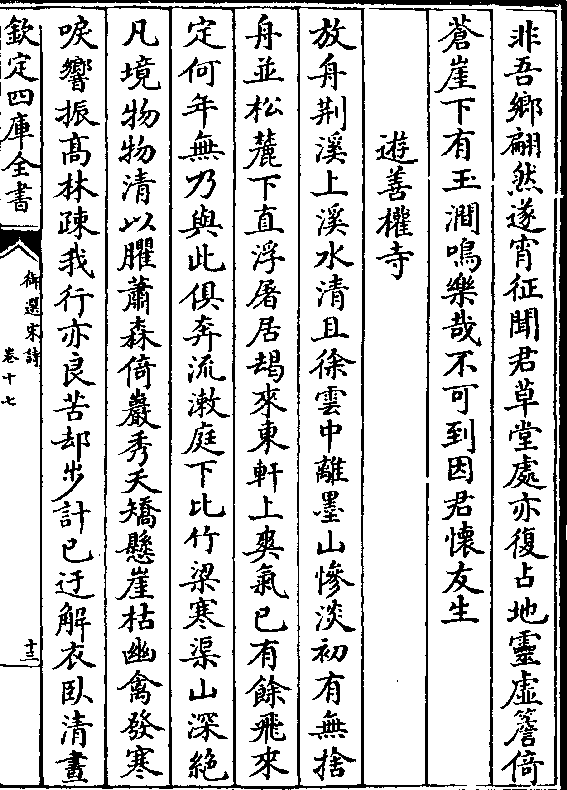 非吾鄉翩然遂宵征聞君草堂處亦復占地靈虛簷倚
蒼崖下有玉澗鳴樂哉不可到因君懷友生
遊善權寺
放舟荆溪上溪水清且徐雲中離墨山慘淡初有無捨
舟並松麓下直浮屠居朅來東軒上爽氣已有餘飛來
定何年無乃與此俱奔流漱庭下比竹梁寒渠山深絶
凡境物物清以臞蕭森倚巖秀夭矯懸崖枯幽禽發寒
唳響振髙林疎我行亦良苦却步計已迂解衣臥清晝
欽定四庫全書
御選宋詩
卷十七
十三